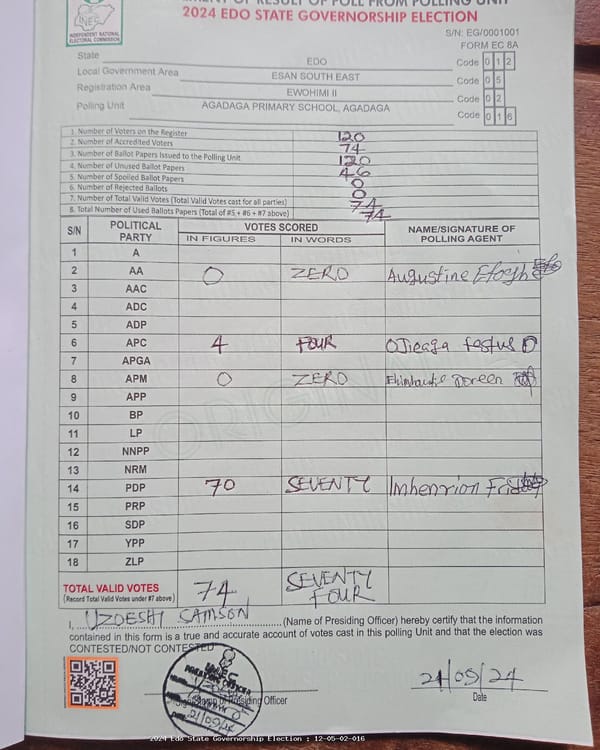 2024 EDO STATE GOVERNORSHIP ELECTION
INEC
INDEPENDENT NATIONAL
ELECTORAL COMMISSION
S/N: EG/0001001
FORM EC 8A
State EDO Code 0 1 2
Local Government Area ESAN SOUTH EAST Code 0 5
Registration Area EWOHIMI II Code 0 2
Polling Unit AGADAGA PRIMARY SCHOOL, AGADAGA Code 0 1 6
1. Number of Voters on the Register 120
2. Number of Accredited Voters 74
3. Number of Ballot Papers Issued to the Polling Unit 120
4. Number of Unused Ballot Papers 46
5. Number of Spoiled Ballot Papers 0
6. Number of Rejected Ballots 0
7. Number of Total Valid Votes (Total Valid Votes cast for all parties) 74
8. Total Number of Used Ballots Papers (Total of #5 + #6 + #7 above) 74
S/N POLITICAL PARTY VOTES SCORED NAME/SIGNATURE OF POLLING AGENT
IN FIGURES IN WORDS
1 A
2 AA 0 ZERO Augustine
3 AAC
4 ADC
5 ADP
6 APC 4 FOUR Ojieaga festus
7 APGA
8 APM 0 ZERO Doreen
9 APP
10 BP
11 LP
12 NNPP
13 NRM
14 PDP 70 SEVENTY Imhenrion
15 PRP
16 SDP
17 YPP
18 ZLP
TOTAL VALID VOTES 74 SEVENTY FOUR
(Record Total Valid Votes under #7 above)
I, UZOESHI SAMSON (Name of Presiding Officer) hereby certify that the information
contained in this form is a true and accurate account of votes cast in this polling Unit and that the election was
CONTESTED/NOT CONTESTED
21/09/24
Presiding Officer
Date
2024 Edo State Governorship Election : 12-05-02-016